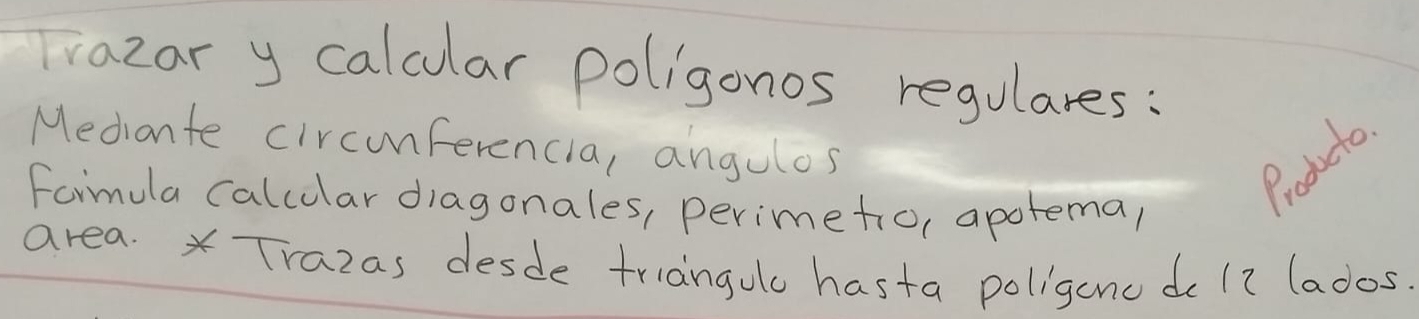 Trazar y calcular polígonos regulares:
Mediante circunferencia, ángulos
Fórmula calcular diagonales, perimetro, apotema,
area. * Trazas desde triángulo hasta polígono de 12 lados.
Producto.